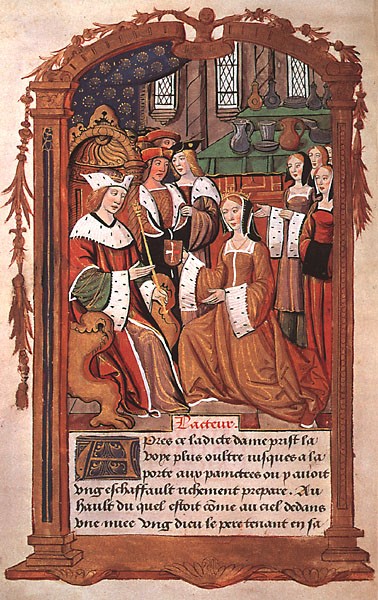 Lacteur.
Apres ce ladicte dame prist la
voye plus oultre iusques a la
porte aux painctres ou y avoit
ung eschaffault richement prepare. Au
hault du quel estoit come au ciel dedans
une nuee ung dieu le pere tenant en sa